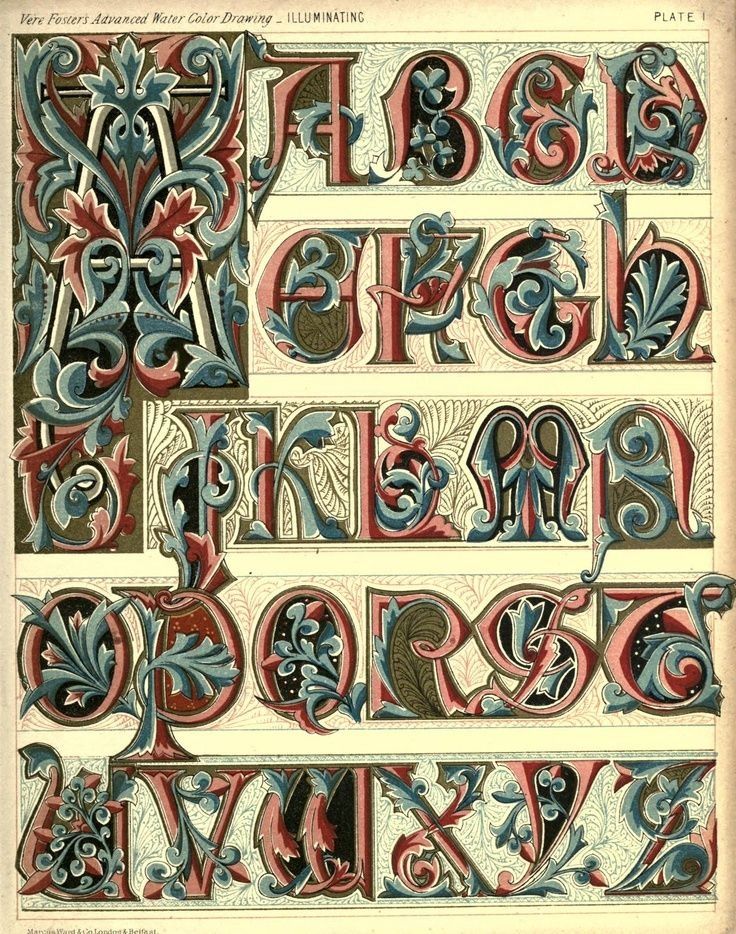 Vere Foster's Advanced Water Color Drawing _ ILLUMINATING PLATE I
A
A B C D
E F G h
I K L M N
O P Q R S T
U V W X Y Z
Marcus Ward & Co. London & Belfast.